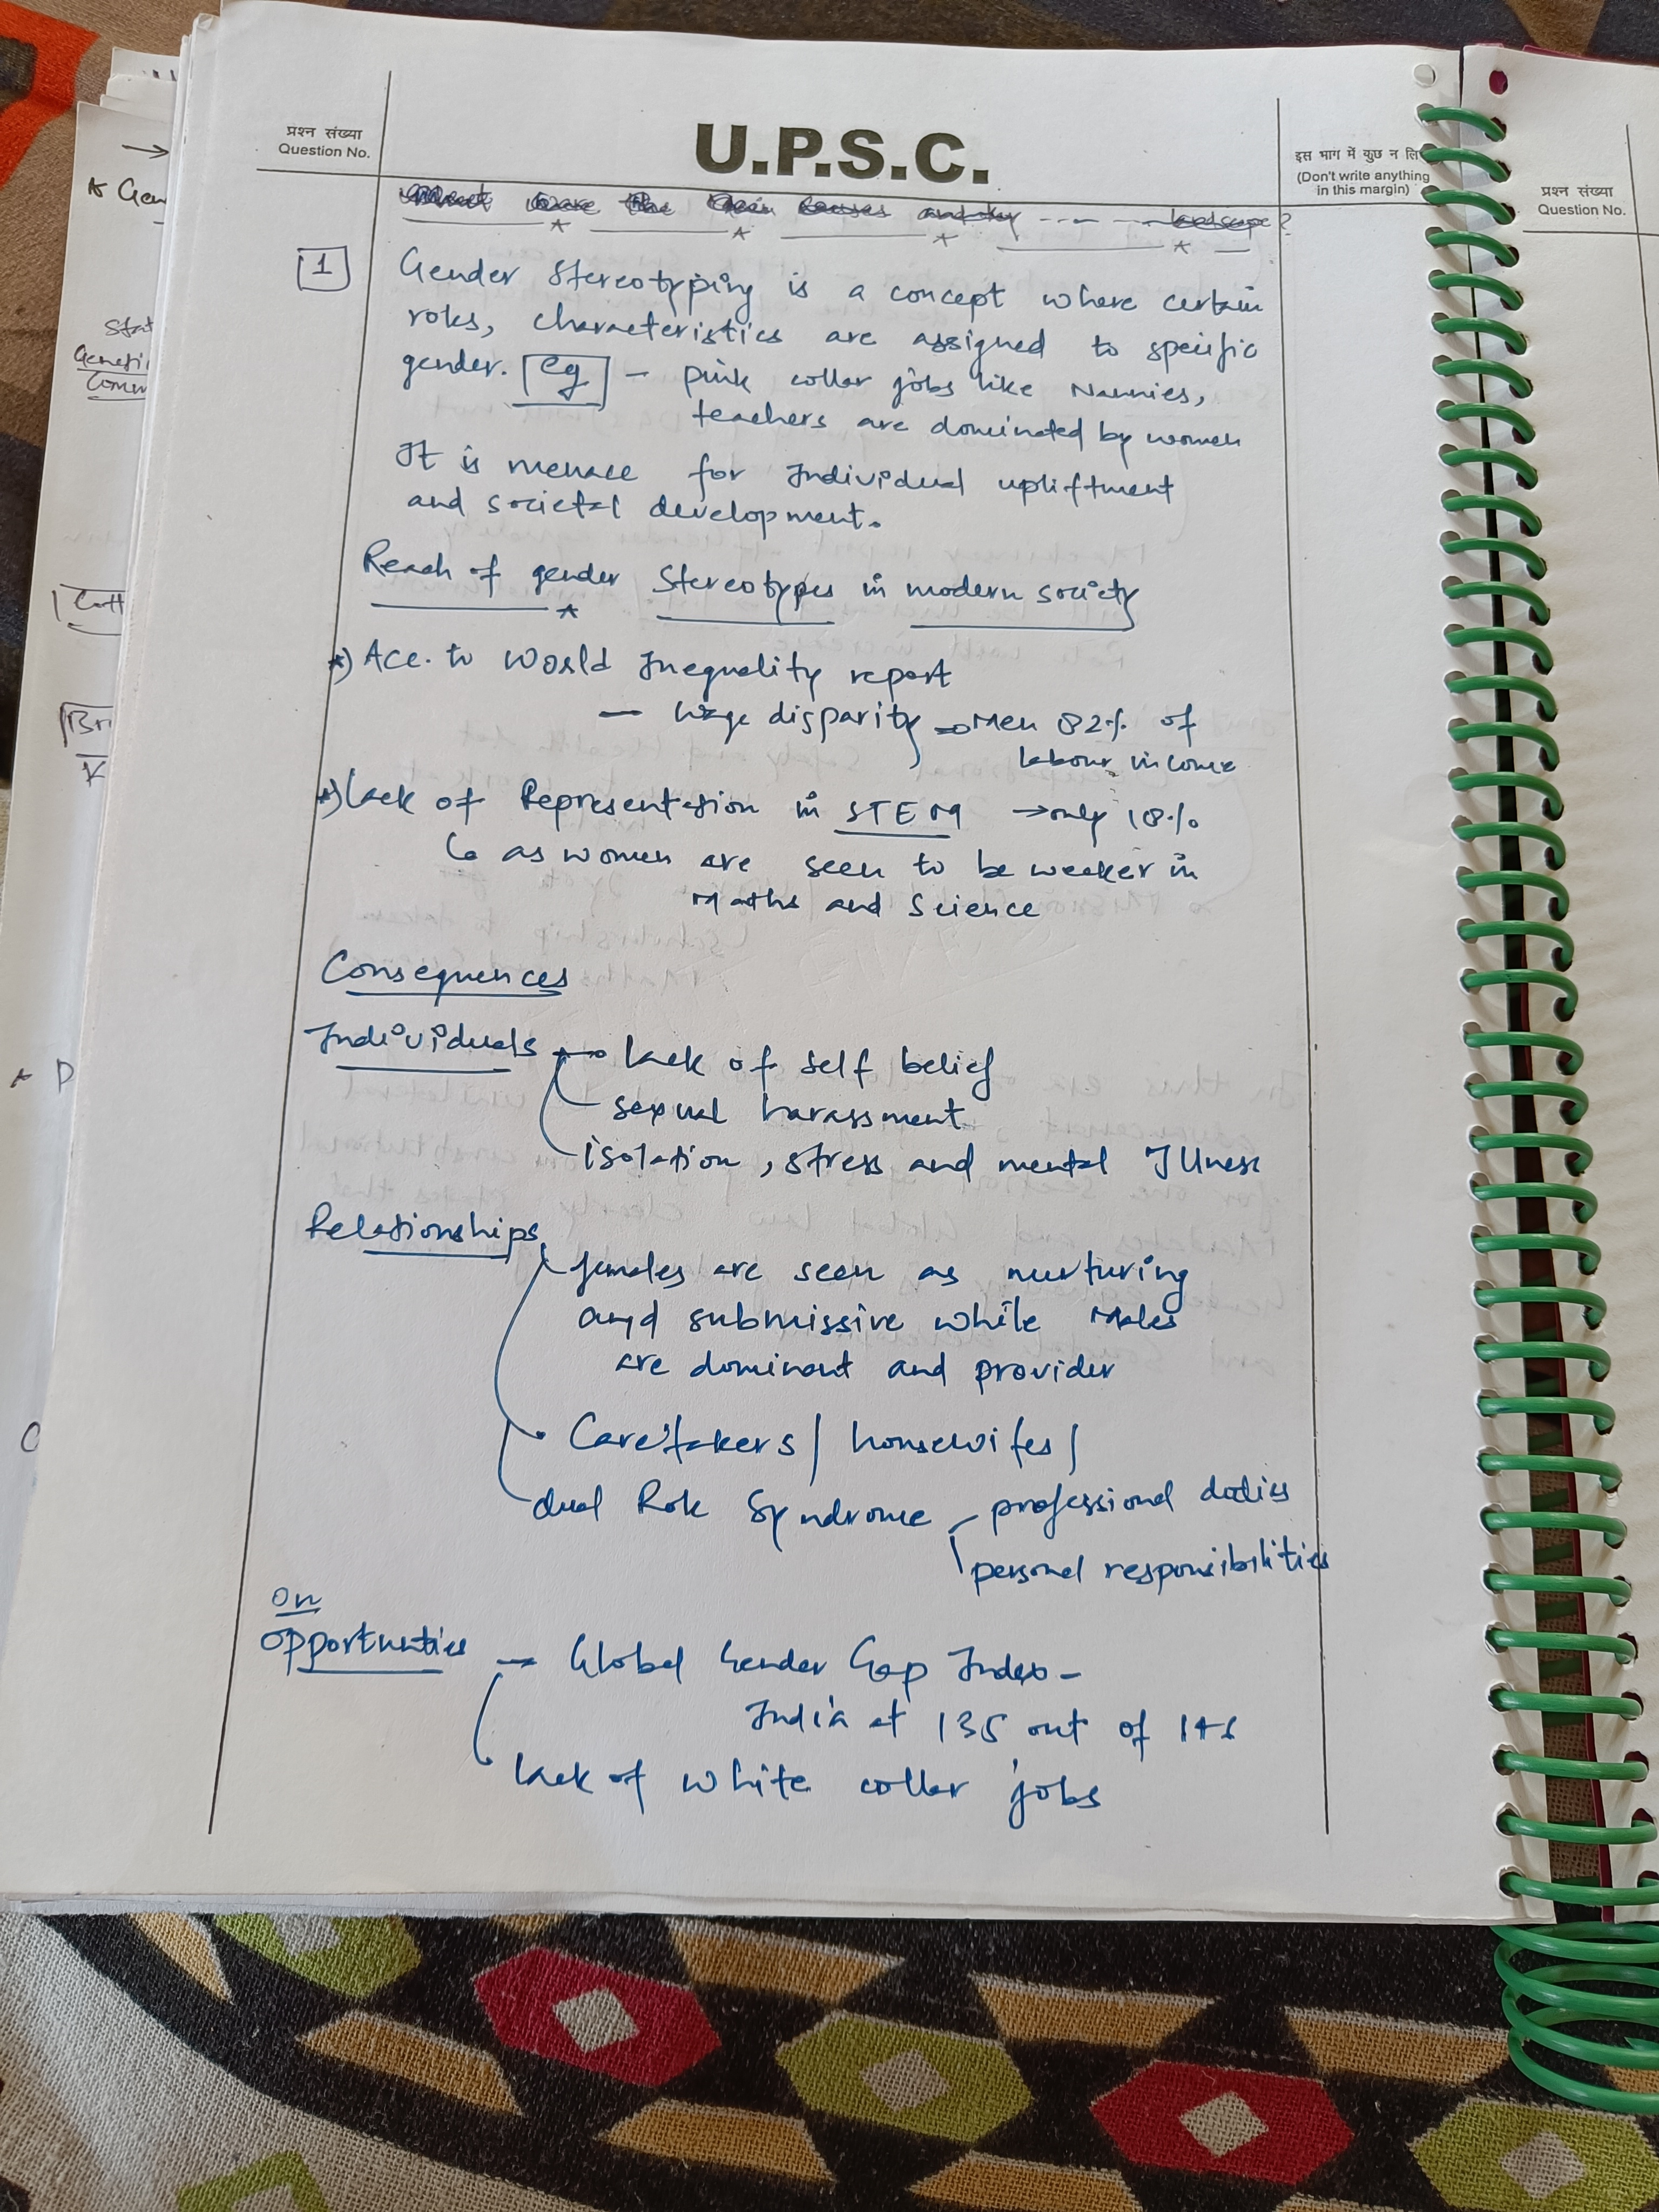 प्रश्न संख्या
Question No.
U.P.S.C.
इस भाग में कुछ न लि
(Don't write anything
in this margin)
प्रश्न संख्या
Question No.
1
Gender Stereotyping is a concept where certain
roles, characteristics are assigned to specific
gender. eg - pink collar jobs like Nannies,
teachers are dominated by women
It is menace for Individual upliftment
and societal development.
Reach of gender Stereotypes in modern society
*) Acc. to World Inequality report
- Wage disparity → Men 82% of
labour income
*) lack of Representation in STEM → only 18%
↳ as women are seen to be weaker in
Maths and Science
Consequences
Individuals → lack of self belief
sexual harassment
isolation, stress and mental Illness
Relationships
females are seen as nurturing
and submissive while Males
are dominant and provider
Caretakers / housewifes /
dual Role Syndrome professional duties
personal responsibilities
on
opportunities → Global Gender Gap Index -
India at 135 out of 146
lack of white collar jobs